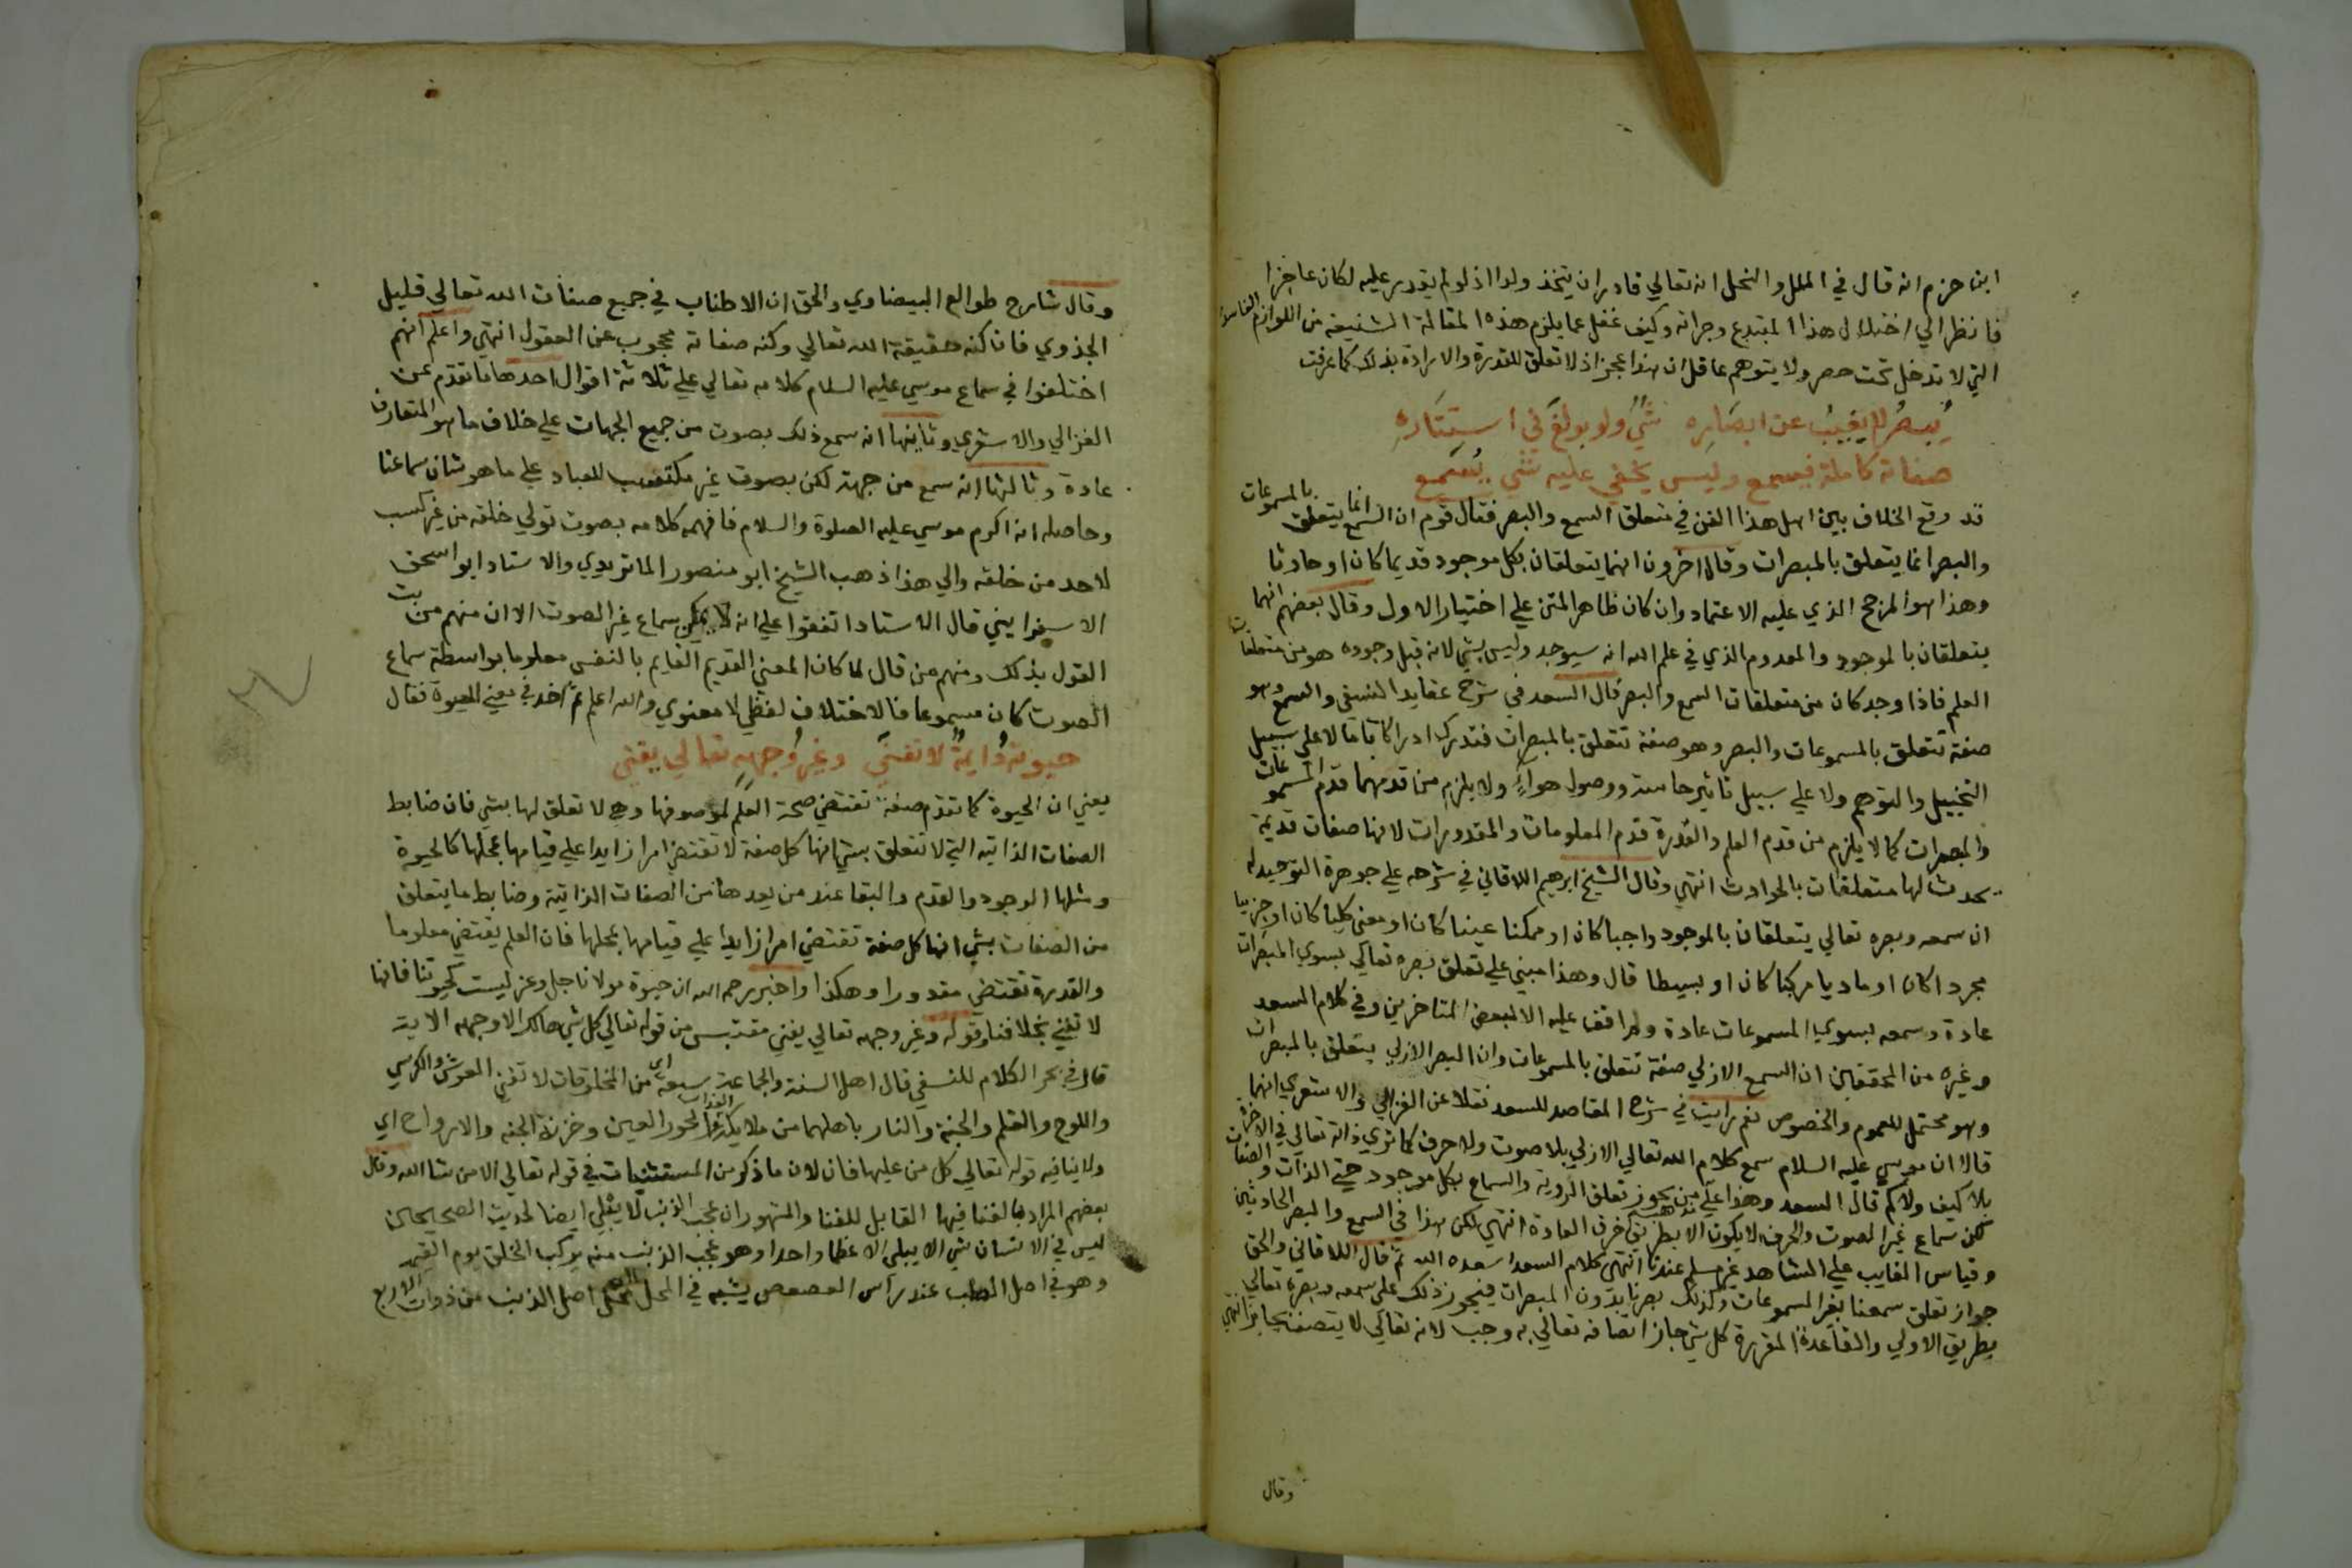 ابن حزم انه قال في الملل والنحل انه تعالي قادر ان يتخذ ولدا اذ لو لم يقدر عليه لكان عاجزا
فانظر الي اختلال هذا المبتدع وجراته وكيف غفل عما يلزم هذه المقالة الشنيعة من اللوازم الفاسدة
التي لا تدخل تحت حصر ولا يتوهم عاقل ان هذا عجز اذ لا تعلق للقدرة والارادة بذلك كما عرفت
يبصر لا يغيب عن ابصاره شي ولو بولغ في استتاره
صفاته كاملة فيسمع وليس يخفي عليه شي يسمع
قد وقع الخلاف بين اهل هذا الفن في متعلق السمع والبصر فقال قوم ان السمع انما يتعلق بالمسموعات
والبصر انما يتعلق بالمبصرات وقال اخرون انهما يتعلقان بكل موجود قديما كان او حادثا
وهذا هو المرجح الذي عليه الاعتماد وان كان ظاهر المتن علي اختيار الاول وقال بعضهم انهما
يتعلقان بالموجود والمعدوم الذي في علم الله انه سيوجد وليس بشي لانه قبل وجوده هو من متعلقات
العلم فاذا وجد كان من متعلقات السمع والبصر قال السعد في شرح عقايد النسفي والسمع وهو
صفة تتعلق بالمسموعات والبصر وهو صفة تتعلق بالمبصرات فتدرك ادراكا تاما لا علي سبيل
التخييل والتوهم ولا علي سبيل تاثير حاسة ووصول هواء ولا يلزم من قدمهما قدم المسموعات
والمبصرات كما لا يلزم من قدم العلم والقدرة قدم المعلومات والمقدورات لانها صفات قديمة
يحدث لها متعلقات بالحوادث انتهي وقال الشيخ ابرهيم اللاقاني في شرحه علي جوهرة التوحيد له
ان سمعه وبصره تعالي يتعلقان بالموجود واجبا كان او ممكنا عينا كان او معني كليا كان او جزييا
مجردا كان او ماديا مركبا كان او بسيطا قال وهذا مبني علي تعلق بصره تعالي بسوي المبصرات
عادة وسمعه بسوي المسموعات عادة ولم اقف عليه الا لبعض المتاخرين وفي كلام السعد
وغيره من المحققين ان السمع الازلي صفة تتعلق بالمسموعات وان البصر الازلي يتعلق بالمبصرات
وهو محتمل للعموم والخصوص نعم رايت في شرح المقاصد للسعد نقلا عن الغزالي والاشعري انهما
قالا ان موسي عليه السلام سمع كلام الله تعالي الازلي بلا صوت ولا حرف كما تري ذاته تعالي في الاخرة
بلا كيف ولا كم قال السعد وهذا علي من يجوز تعلق الروية والسماع بكل موجود حتي الذات والصفات
لكن سماع غير الصوت والحرف لا يكون الا بطريق خرق العادة انتهي لكن هذا في السمع والبصر الحادثين
وقياس الغايب علي المشاهد غير مسلم عندنا انتهي كلام السعد اسعده الله ثم قال اللاقاني والحق
جواز تعلق سمعنا بغير المسموعات وكذلك بصرنا بدون المبصرات فيجوز ذلك علي سمعه وبصره تعالي
بطريق الاولي والقاعدة المقررة كل شي جاز اتصافه تعالي به وجب لانه تعالي لا يتصف بجايز انتهي
وقال
وقال شارح طوالع البيضاوي والحق ان الاطناب في جميع صفات الله تعالي قليل
الجذوي فان كنه حقيقة الله تعالي وكنه صفاته محجوب عن العقول انتهي واعلم انهم
اختلفوا في سماع موسي عليه السلام كلامه تعالي علي ثلاثة اقوال احدها ما تقدم عن
الغزالي والاشعري وثانيها انه سمع ذلك بصوت من جميع الجهات علي خلاف ما هو المتعارف
عادة وثالثها انه سمع من جهة لكن بصوت غير مكتسب للعباد علي ما هو شان سماعنا
وحاصله انه اكرم موسي عليه الصلوة والسلام فافهمه كلامه بصوت تولي خلقه من غير كسب
لاحد من خلقه والي هذا ذهب الشيخ ابو منصور الماتريدي والاستاد ابو اسحق
الاسفرايني قال الاستاد اتفقوا علي انه لا يمكن سماع غير الصوت الا ان منهم من بت
القول بذلك ومنهم من قال لما كان المعني القديم القايم بالنفس معلوما بواسطة سماع
الصوت كان مسموعا فالاختلاف لفظي لا معنوي والله اعلم ثم اخذ في معني الحيوة فقال
حيوته دايمة لا تفني وغير وجهه تعالي يفني
يعني ان الحيوة كما تقدم صفة تقتضي صحة العلم لموصوفها وهي لا تعلق لها بشي فان ضابط
الصفات الذاتيه التي لا تتعلق بشي انها كل صفة لا تقتضي امرا زايدا علي قيامها بمحلها كالحيوة
ومثلها الوجود والقدم والبقا عند من يعدها من الصفات الذاتية وضابط ما يتعلق
من الصفات بشي انها كل صفة تقتضي امرا زايدا علي قيامها بمحلها فان العلم يقتضي معلوما
والقدرة تقتضي مقدورا وهكذا واخبر رحمه الله ان حيوة مولانا جل وعز ليست كحيوتنا فانها
لا تفني بخلافنا وقوله وغير وجهه تعالي يفني مقتبس من قوله تعالي كل شي هالك الا وجهه الاية
قال في بحر الكلام للنسفي قال اهل السنة والجماعة سبعة اي من المخلوقات لا تفني العرش والكرسي
واللوح والقلم والجنة والنار باهلهما من ملايكة العذاب والحور العين وخزنة الجنه والارواح اي
ولا ينافيه قوله تعالي كل من عليها فان لان ما ذكر من المستثنيات في قوله تعالي الا من شا الله وقال
بعضهم المراد بالفنا فيها القابل للفنا والمشهور ان عجب الذنب لا يبلي ايضا لحديث الصحيحين
ليس في الانسان شي الا يبلي الا عظما واحدا وهو عجب الذنب منه يركب الخلق يوم القيمة
وهو في اصل الصلب عند راس العصعص يشبه في المحل محل اصل الذنب من ذوات الاربع